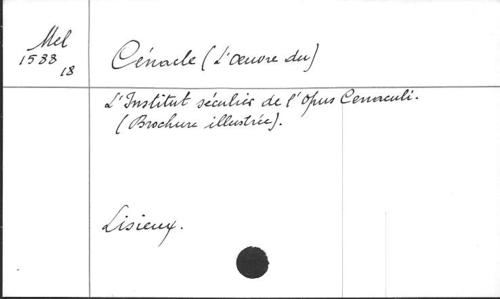 Mel
1533
18
Cénacle (L'Œuvre du)
L'Institut séculier de l'Opus Cenaculi.
(Brochure illustrée).
Lisieux.